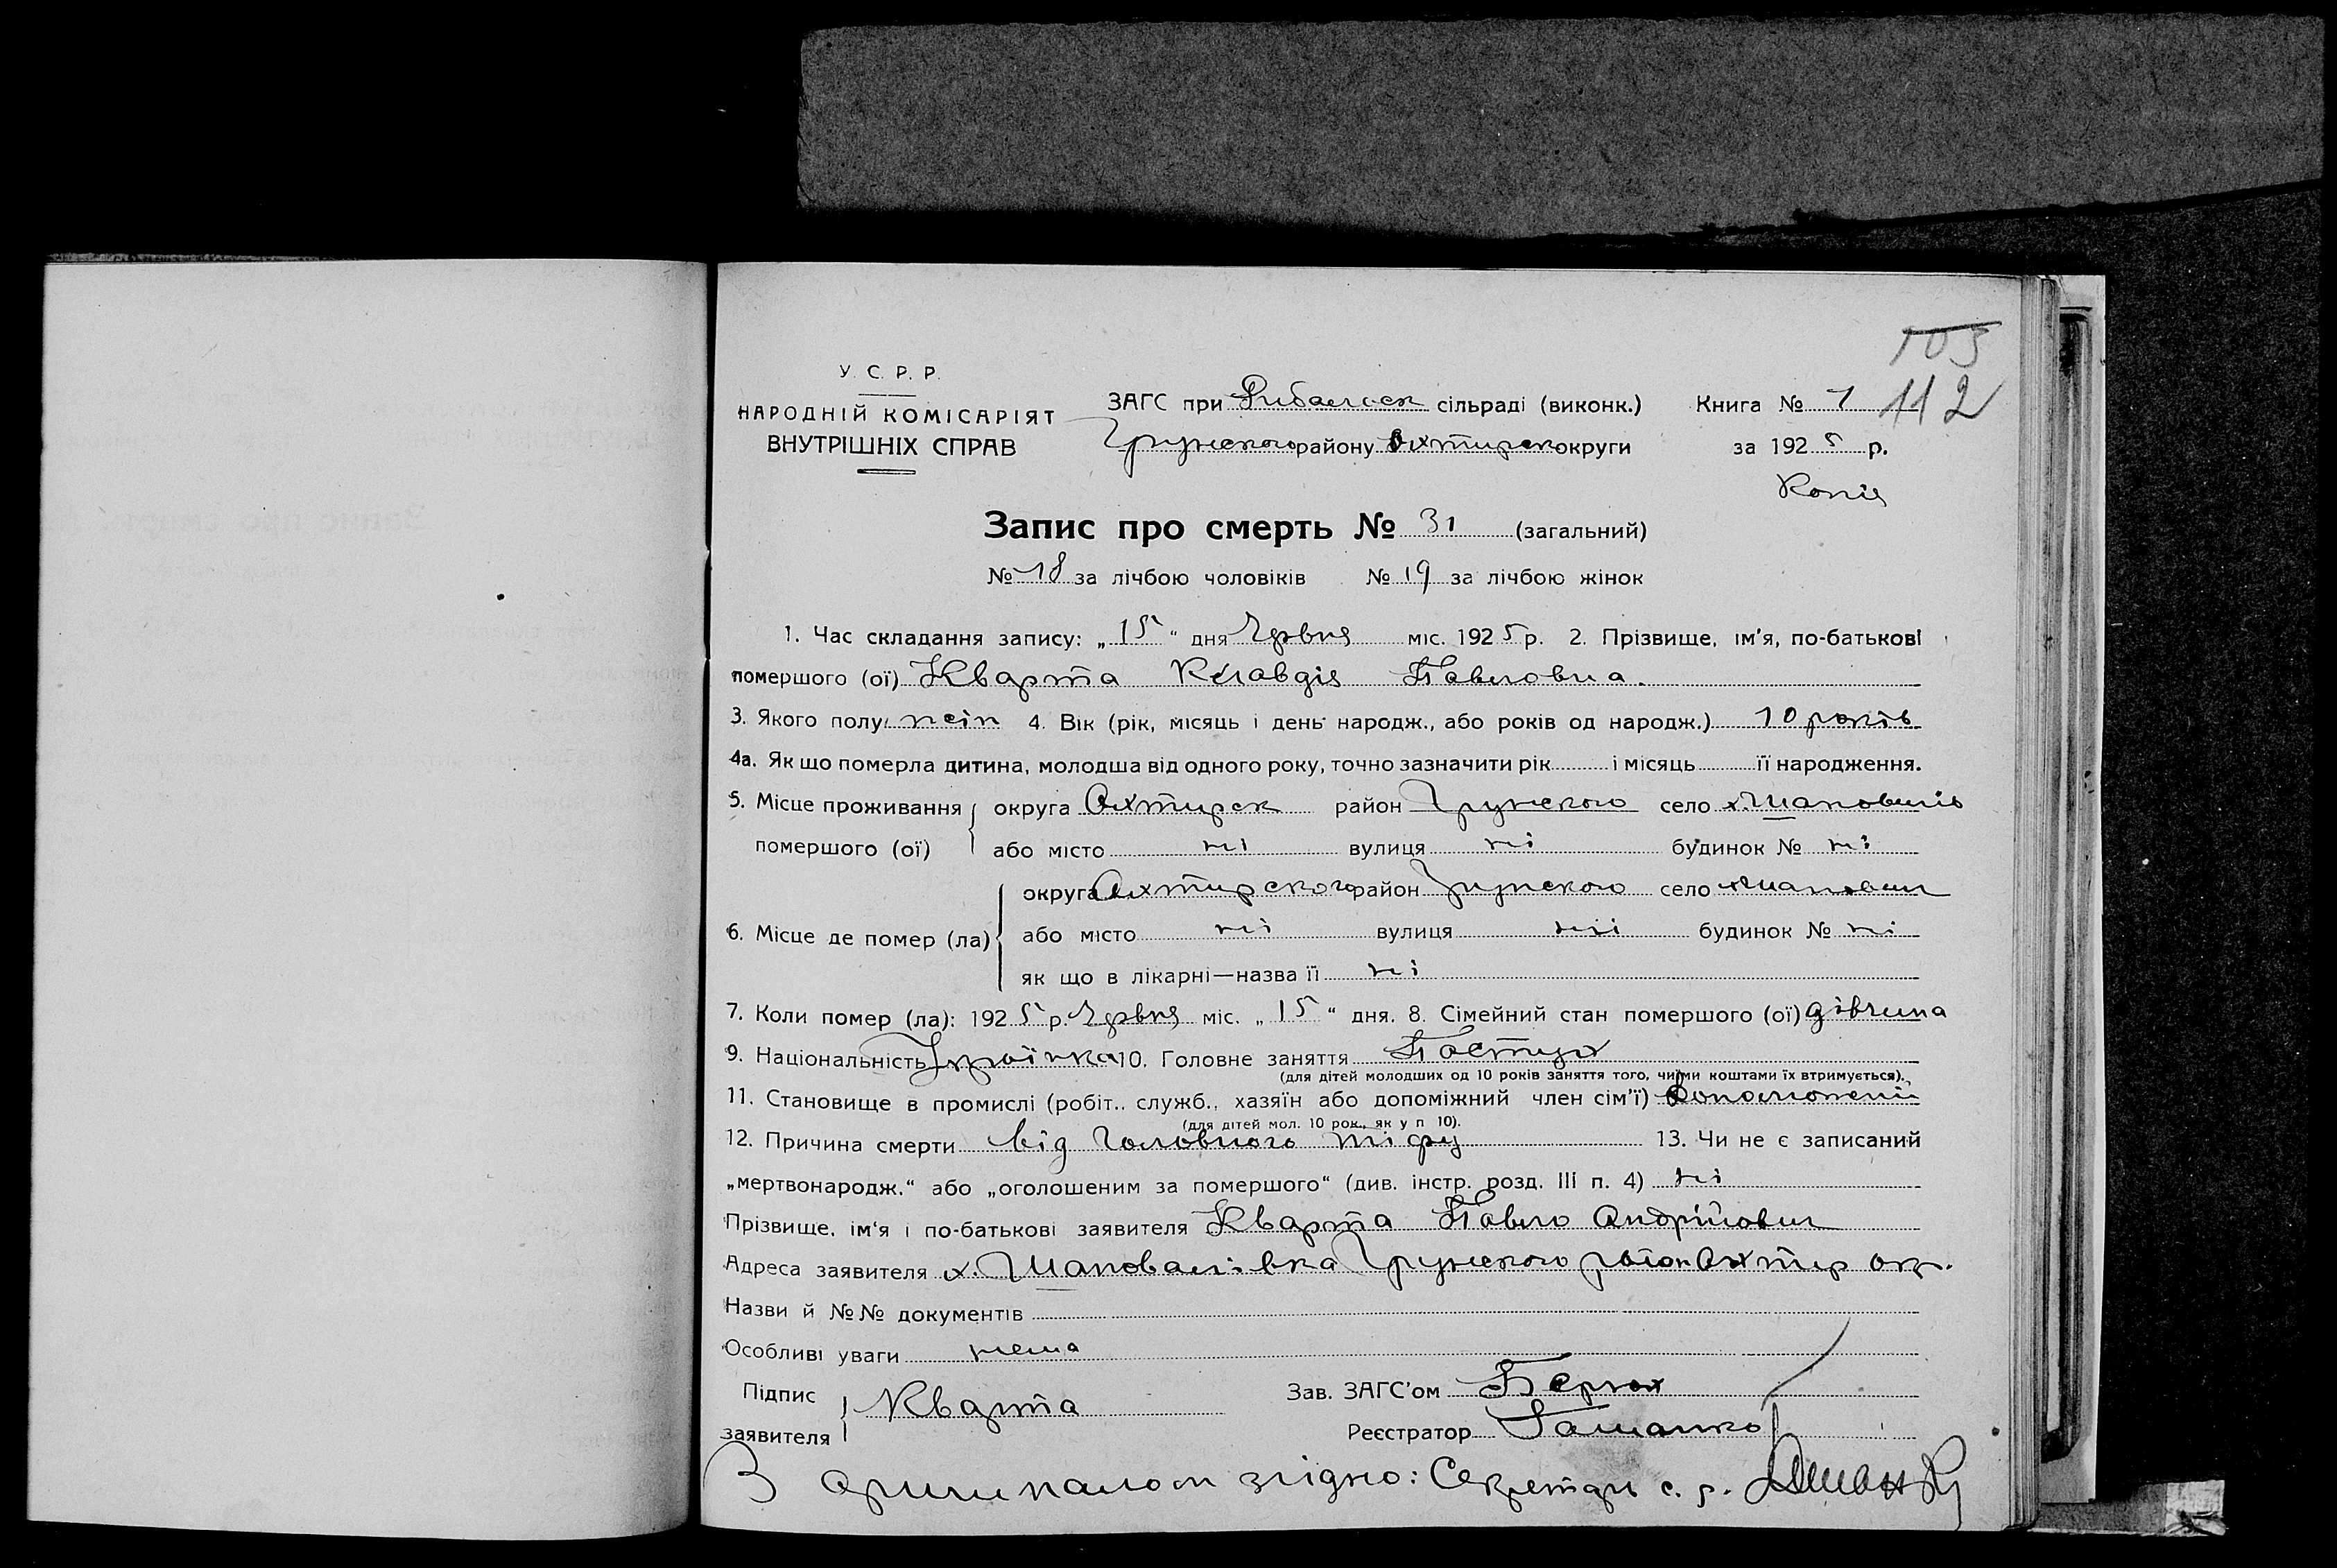 103
У. С. Р. Р.
НАРОДНІЙ КОМІСАРІЯТ
ВНУТРІШНІХ СПРАВ
ЗАГС при Рибальськ сільраді (виконк.)
Грунського району Охтирськ округи
Книга № 1 112
за 1925 р.
Копія
Запис про смерть № 31 (загальний)
№ 18 за лічбою чоловіків № 19 за лічбою жінок
1. Час складання запису: „15“ дня Чрвня міс. 1925 р. 2. Прізвище, ім'я, по-батькові
помершого (ої) Кварта Клавдія Павловна.
3. Якого полу 4. Вік (рік, місяць і день народж., або років од народж.) 10 років
4а. Як що померла дитина, молодша від одного року, точно зазначити рік і місяць її народження.
5. Місце проживання округа Охтирськ район Грунського село х. Шаповалів
помершого (ої) або місто ні вулиця ні будинок № ні
округа Охтирського район Грунського село х Шаповал
6. Місце де помер (ла) або місто ні вулиця ні будинок № ні
як що в лікарні—назва її ні
7. Коли помер (ла): 1925 р. Чрвня міс. „15“ дня. 8. Сімейний стан помершого (ої) дівчина
9. Національність Украінка 10. Головне заняття Пастух
(для дітей молодших од 10 років заняття того, чиїми коштами їх втримується).
11. Становище в промислі (робіт., служб., хазяїн або допоміжний член сім'ї)
(для дітей мол. 10 рок., як у п 10).
12. Причина смерти від головного тіфу 13. Чи не є записаний
„мертвонародж.“ або „оголошеним за помершого“ (див. інстр. розд. III п. 4) ні
Прізвище, ім'я і по-батькові заявителя Кварта Павло Андрійович
Адреса заявителя х. Шаповалівка Грунського район Охтир окр.
Назви й №№ документів
Особливі уваги нема
Підпис
заявителя Кварта
Зав. ЗАГС'ом
Реєстратор
З оригиналом згідно: Секретарь с. р.